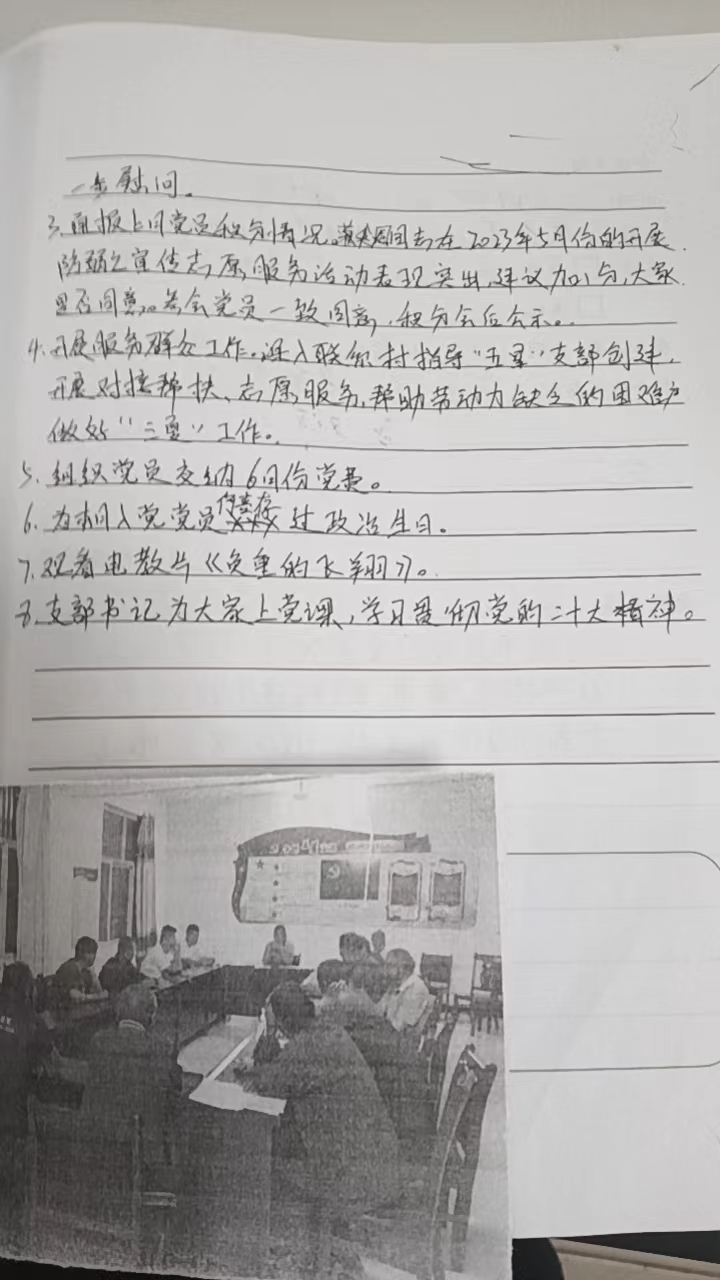 一步慰问。
3.通报上月党员积分情况。同志在2023年5月份的开展
防溺之宣传志愿服务活动表现突出,建议加1分,大家
是否同意。参会党员一致同意,积分会后公示。
4.开展服务群众工作。深入联系村指导“五星”支部创建,
开展对接帮扶、志愿服务,帮助劳动力缺乏的困难户
做好“三夏”工作。
5.组织党员交纳6月份党费。
6.为本月入党党员过政治生日。
7.观看电教片《负重的飞翔》。
8.支部书记为大家上党课,学习贯彻党的二十大精神。